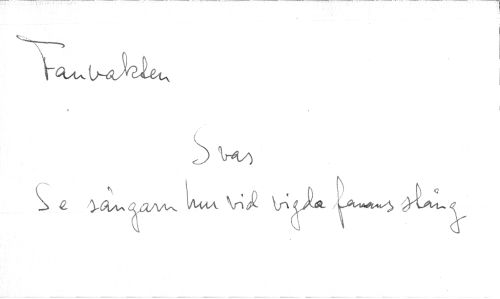 Fanvakten
Svas
Se sångarn hur vid vigda fanans stång